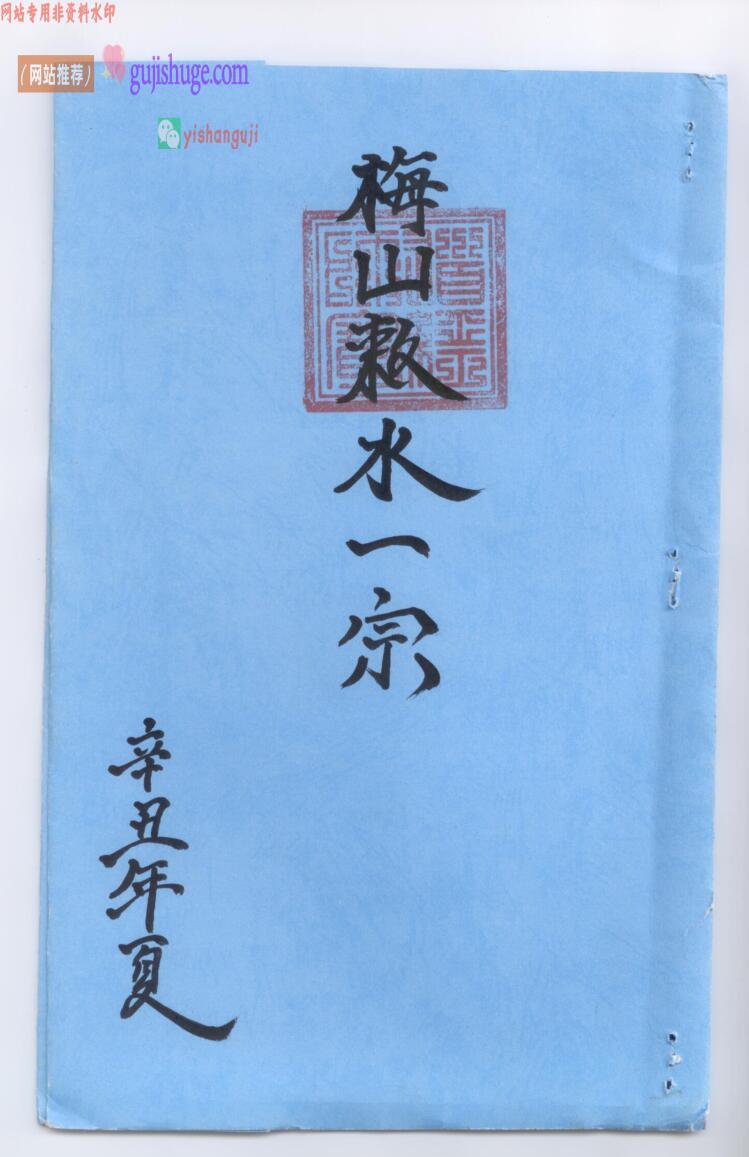 网站专用非资料水印
(网站推荐)
gujishuge.com
yishanguji
梅山敕水一宗
辛丑年夏